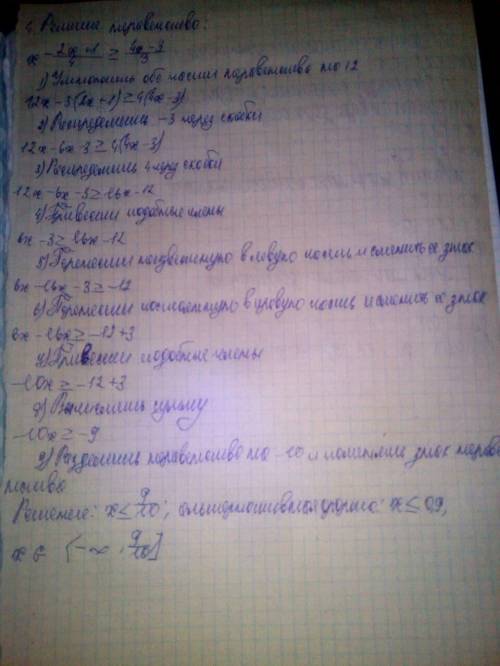 6. Решите неравенство:
x - 2x+1/4 ≥ 4x-3/3
1) Умножить обе части неравенства на 12
12x - 3(2x+1) ≥ 4(4x-3)
2) Распределить -3 через скобки
12x - 6x - 3 ≥ 4(4x-3)
3) Распределить 4 через скобки
12x - 6x - 3 ≥ 16x - 12
4) Привести подобные члены
6x - 3 ≥ 16x - 12
5) Перенести неизвестную в левую часть и сменить её знак
6x - 16x - 3 ≥ -12
6) Перенести постоянную в правую часть и сменить её знак
6x - 16x ≥ -12 + 3
7) Привести подобные члены
-10x ≥ -12 + 3
8) Вычислить сумму
-10x ≥ -9
9) Разделить неравенство на -10 и поменять знак нераве
нства
Решение: x ≤ 9/10; альтернативная форма: x ≤ 0,9,
x ∈ [-∞, 9/10]